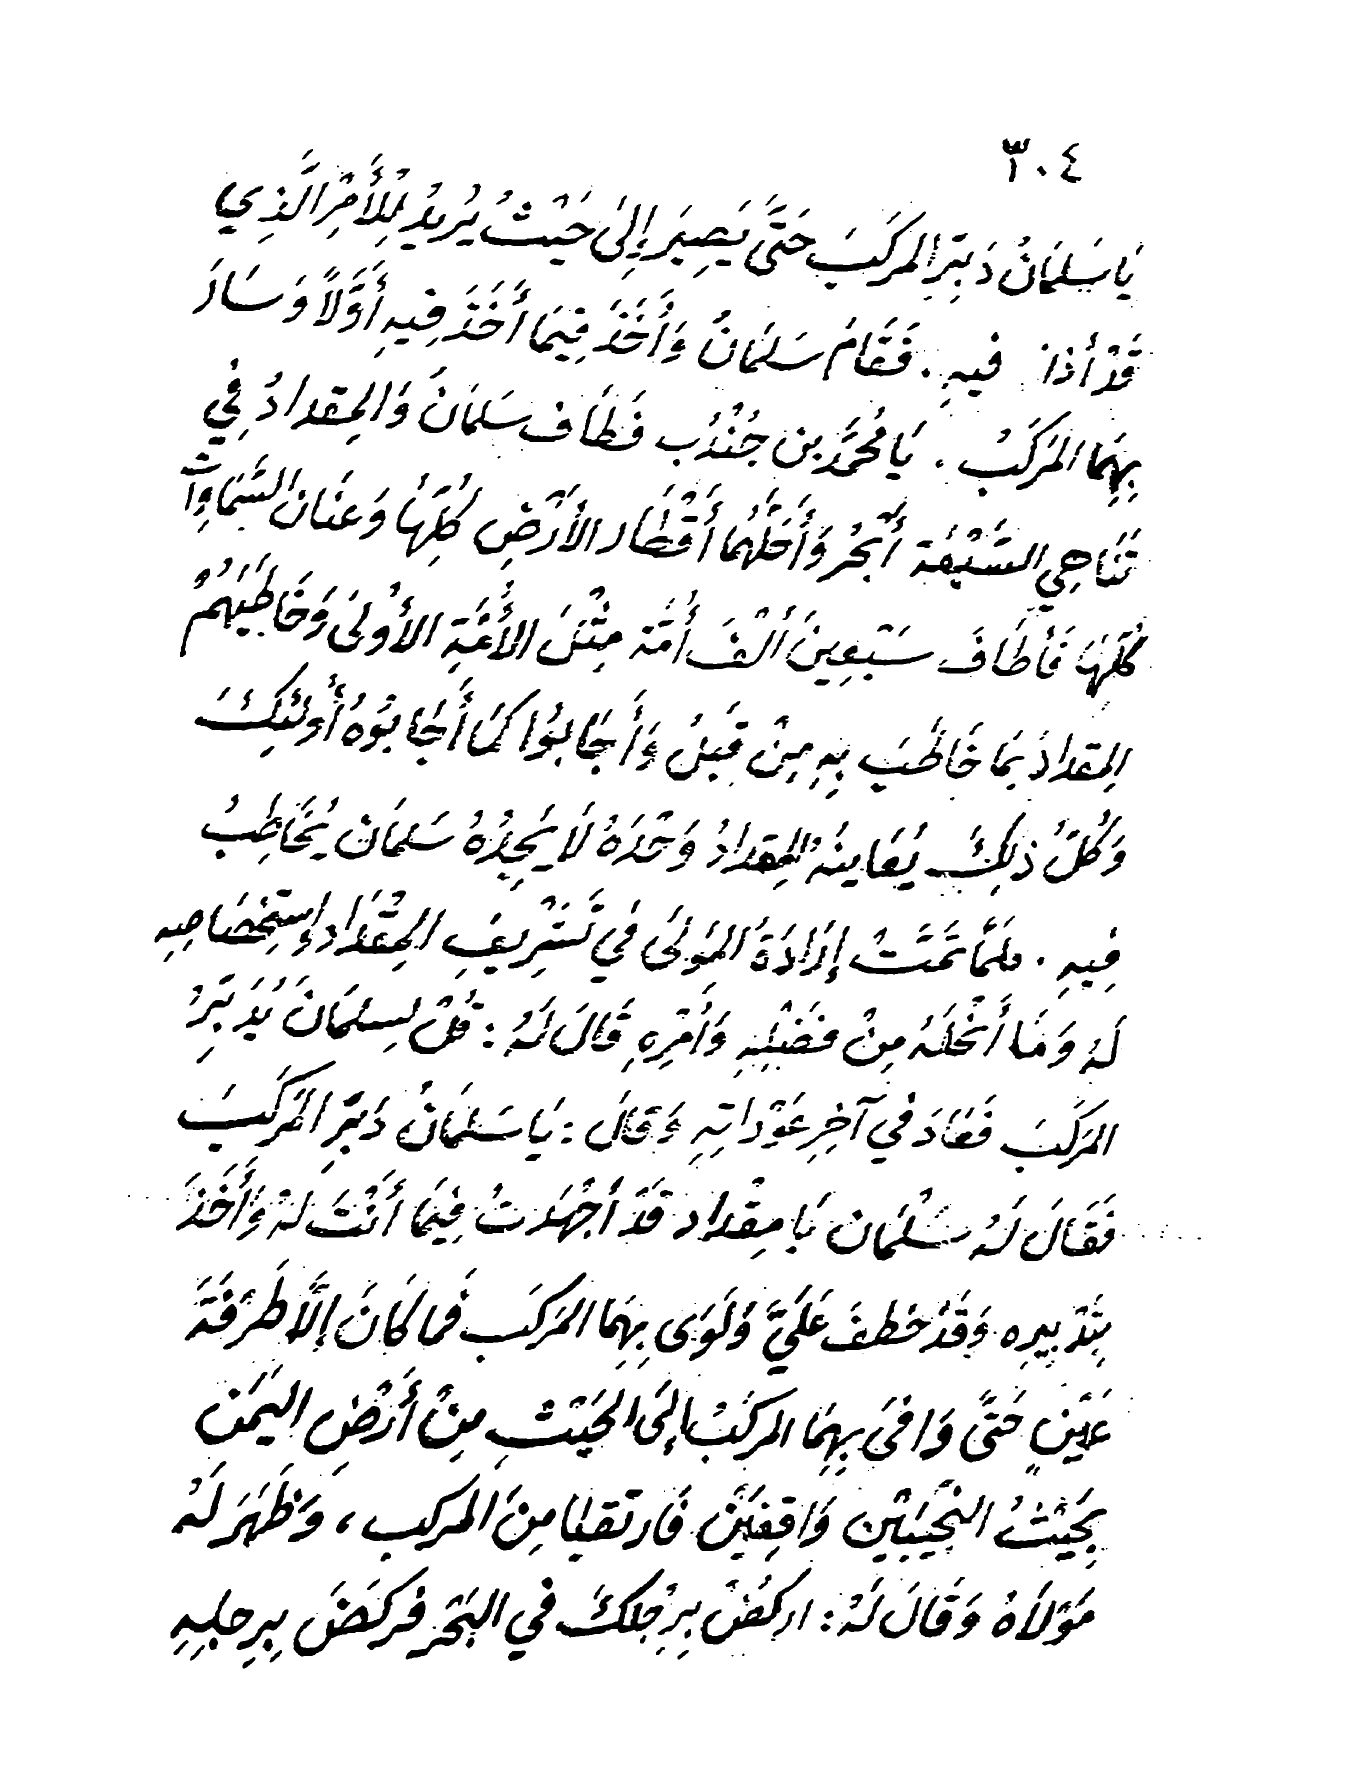 ٣٠٤
يَا سَلمَانُ دَبِّرِ المركَبَ حَتَّى يَصِيرَ إِلىَ حَيْثُ يُرِيدُ لِلأَمْرِ الَّذِي
قَدْ أذا فيهِ . فَقَامُ سَلمَانُ وَأَخَذَ فِيمَا أَخَذَ فِيهِ أَوَّلاً وَسَارَ
بِهِمَا المَركَبُ . يَا مُحمَّد بن جُنْدُب فَطَاف سَلمَانَ وَالمِقدادُ فِي
تَنَاهِي السَّبْعَة أَبْحُر وَأَحَلَّهُما أَقْطَار الأَرْضِ كُلِّهَا وَعنَان السَّمَاوِات
كُلِّهَا فَأَطَافَ سَبْعِينَ أَلْفَ أُمَّة مِثْلَ الأُمَّةِ الأُولىَ وَخَاطَبَهُمْ
المِقدادُ بَمَا خَاطَبَ بِهِ مِنْ قَبلُ وَأَجَابوُا كَمَا أَجَابوُهُ أُولئِكَ
وَكُلُّ ذلِكَ يُعَاينهُ المِقدادُ وَحْدَهُ لاَ يَجِدُهُ سَلمَان يُخَاطِبُ
فِيهِ . فلمَّا تمَّتْ إِرَادَةُ المَولىَ فيِ تَشرِيفِ المِقْدَاد وإِستِخصَاصِهِ
لَهُ وَمَا أَنْحَلَهُ مِنْ فَضْلِهِ وَأَمْرِهِ قَالَ لَهُ : قُلْ لِسلمَانَ يُدَبِّرُ
المركَبَ فَعَادَ في آخِرِ عَوْدَاتِهِ وَقَالَ : يَا سَلمَانُ دَبِّرِ المَركَبَ
فَقَالَ لَهُ سَلْمَان يَا مِقْداد قَدْ أجْهَدتُ فِيمَا أَنْتَ لَهُ وَأَخَذَ
بِتَدْبِيرِه وَقَدْ خطفَ عَلَيَّ وَلَوَى بِهِمَا المَركَب فَما كَانَ إِلَّا طَرْفَةَ
عَيْنٍ حَتَّى وَافىَ بِهِمَا المركَبُ إِلىَ الحَيْثِ مِنْ أَرْضِ اليَمَن
بِحَيْثُ النَّجِيبَيْن وَاقِفَيْن فَارتقيَا مِنَ المَركب ، وَظَهَرَ لَهُ
مَوْلاَهُ وَقَالَ لَهُ : اركُضْ بِرِجْلكَ في البَحْر فركَضَ بِرِجلِهِ